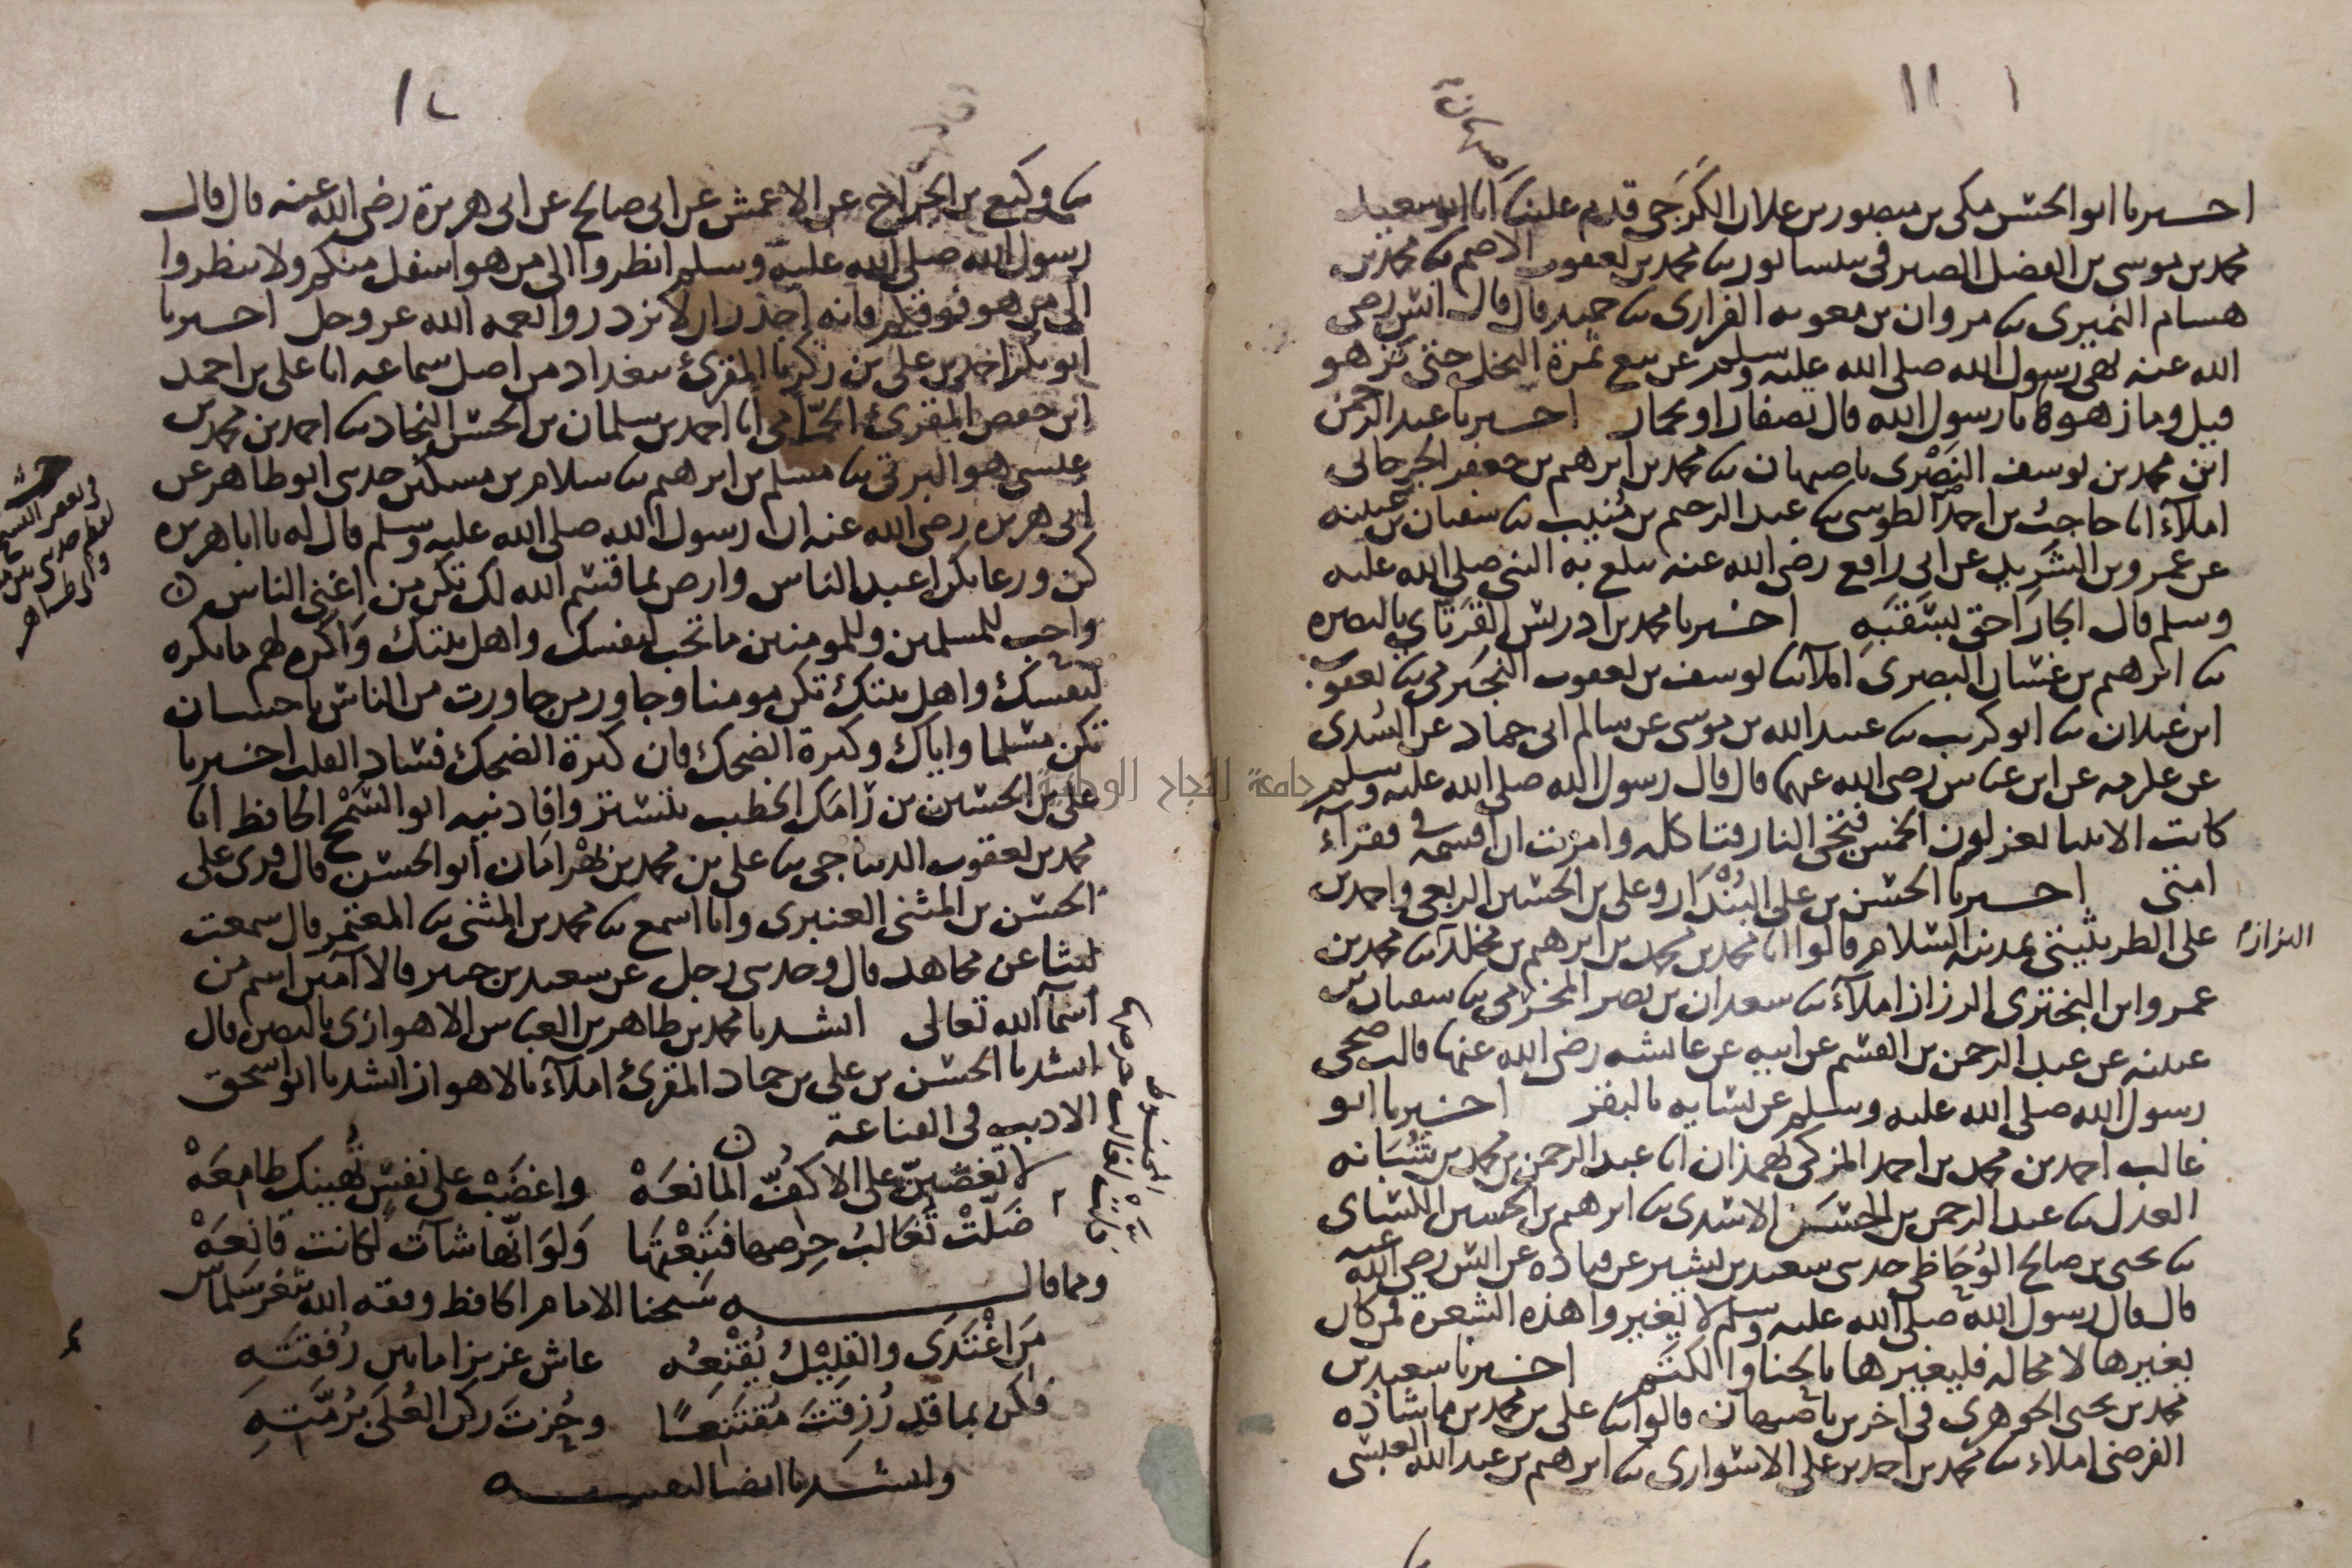 ١١
اصبهان
احبرنا ابو الحسن مكي بن منصور بن علان الكرجي قدم علينا انا ابو سعيد
محمد بن موسى بن الفضل الصير في بنيسابور نا محمد بن يعقوب الاصم نا محمد بن
هشام النميري نا مروان بن معويه الفزاري نا حميد قال قال انس رضي
الله عنه نهى رسول الله صلى الله عليه وسلم عن بيع ثمرة النخل حتى تزهو
قيل وما زهوها يا رسول الله قال تصفار او تحمار احبرنا عبد الرحمن
ابن محمد بن يوسف النصري باصبهان نا محمد بن ابرهيم بن جعفر الجرجاني
املآء انا حاجب بن احمد الطوسي نا عبد الرحيم بن منيب نا سفيان بن عيينه
عن عمرو بن الشريد عن ابي رافع رضي الله عنه يبلغ به النبي صلى الله عليه
وسلم قال الجار احق بسقبه اخبرنا محمد بن ادريس القرتاي بالبصره
نا ابرهيم بن غسان البصري املآء نا يوسف بن يعقوب النجيرمي نا يعقوب
ابن غيلان نا ابو كريب نا عبيد الله بن موسى عن سالم ابي حماد عن السدي
عن عكرمه عن ابن عباس رضي الله عنهما قال قال رسول الله صلى الله عليه وسلم
كانت الانبيا يعزلون الخمس فتجي النار فتاكله وامرت ان اقسمه في فقرآء
امتي احبرنا الحسن بن علي البندار وعلي بن الحسين الربعي واحمد بن
علي الطريثيثي بمدينة السلام قالوا انا محمد بن محمد بن ابرهيم بن مخلد نا محمد بن
البزاز م
عمرو ابن البختري الرزاز املآء نا سعدان بن نصر المخرمي نا سفيان بن
عيينه عن عبد الرحمن بن القسم عن ابيه عن عائشه رضي الله عنها قالت ضحى
رسول الله صلى الله عليه وسلم عن نسايه بالبقر اخبرنا ابو
غالب احمد بن محمد بن احمد المزكي بهمذان انا عبد الرحمن بن محمد بن شبانه
العدل نا عبد الرحمن بن الحسن الاسدي نا ابرهيم بن الحسين الكسائي
نا يحيى بن صالح الوحاظي حدثني سعيد بن بشير عن قتاده عن انس رضي الله عنه
قال قال رسول الله صلى الله عليه وسلم لا تغيروا هذه الشعرة فمن كان
يغيرها لا محاله فليغيرها بالحنا والكتم اخبرنا سعيد بن
محمد بن يحيى الجوهري في اخرين باصبهان قالوا نا علي بن محمد بن ماشاذه
الفرضي املاء نا محمد بن احمد بن علي الاسواري نا ابرهيم بن عبد الله العبسي
١٢
نا وكيع بن الجراح عن الاعمش عن ابي صالح عن ابي هريرة رضي الله عنه قال قال
رسول الله صلى الله عليه وسلم انظروا الى من هو اسفل منكم ولا تنظروا
الى من هو فوقكم فانه اجدر ان لا تزدروا نعمه الله عز وجل احبرنا
ابو بكر احمد بن علي بن زكريا المقرئ ببغداد من اصل سماعه انا علي بن احمد
ابن حفص المقرئ الحمامي انا احمد بن سلمان بن الحسن النجاد نا احمد بن محمد بن
عيسى هو البرتي نا مسلم بن ابرهيم نا سلام بن مسكين حدثني ابو طاهر عن
ابي هريره رضي الله عنه ان رسول الله صلى الله عليه وسلم قال له يا ابا هريره
كن ورعا تكن اعبد الناس وارض بما قسم الله لك تكن من اغنى الناس
واحب للمسلمين وللمومنين ما تحب لنفسك واهل بيتك واكره لهم ما تكره
لنفسك واهل بيتك تكن مومنا وجاور من جاورت من الناس باحسان
تكن مسلما واياك وكثرة الضحك فان كثرة الضحك فساد القلب اخبرنا
علي بن الحسين بن زامك الخطيب بتستر وافادنيه ابو الشمح الحافظ انا
محمد بن يعقوب الديباجي نا علي بن محمد بن بهرامان ابو الحسن قال قري على
الحسن بن المثنى العنبري وانا اسمع نا محمد بن المثنى نا المعتمر قال سمعت
ليثا عن مجاهد قال وحدثني رجل عن سعيد بن جبير قالا آمين اسم من
اسمآ الله تعالى انشدنا محمد بن طاهر بن العباس الاهوازي بالبصره قال
انشدنا الحسن بن علي بن حماد المقرئ املآء بالاهواز انشدنا ابو اسحق
الاديب في القناعة
لا تغضبن على الاكف المانعه واغضب على نفس تهينك طامعه
ضلت تغالب حرصها فتبعتها ولو انها شآت لكانت قانعه
ومما قاله شيخنا الامام الحافظ وفقه الله بثغر سلماس
من اغتدى والقليل يقنعه عاش عزيزا ما بين رفقته
فكن بما قد رزقت مقتنعا وحزت ركن العلى برمته
وانشدنا ايضا لنفسه
جامعة النجاح الوطنية